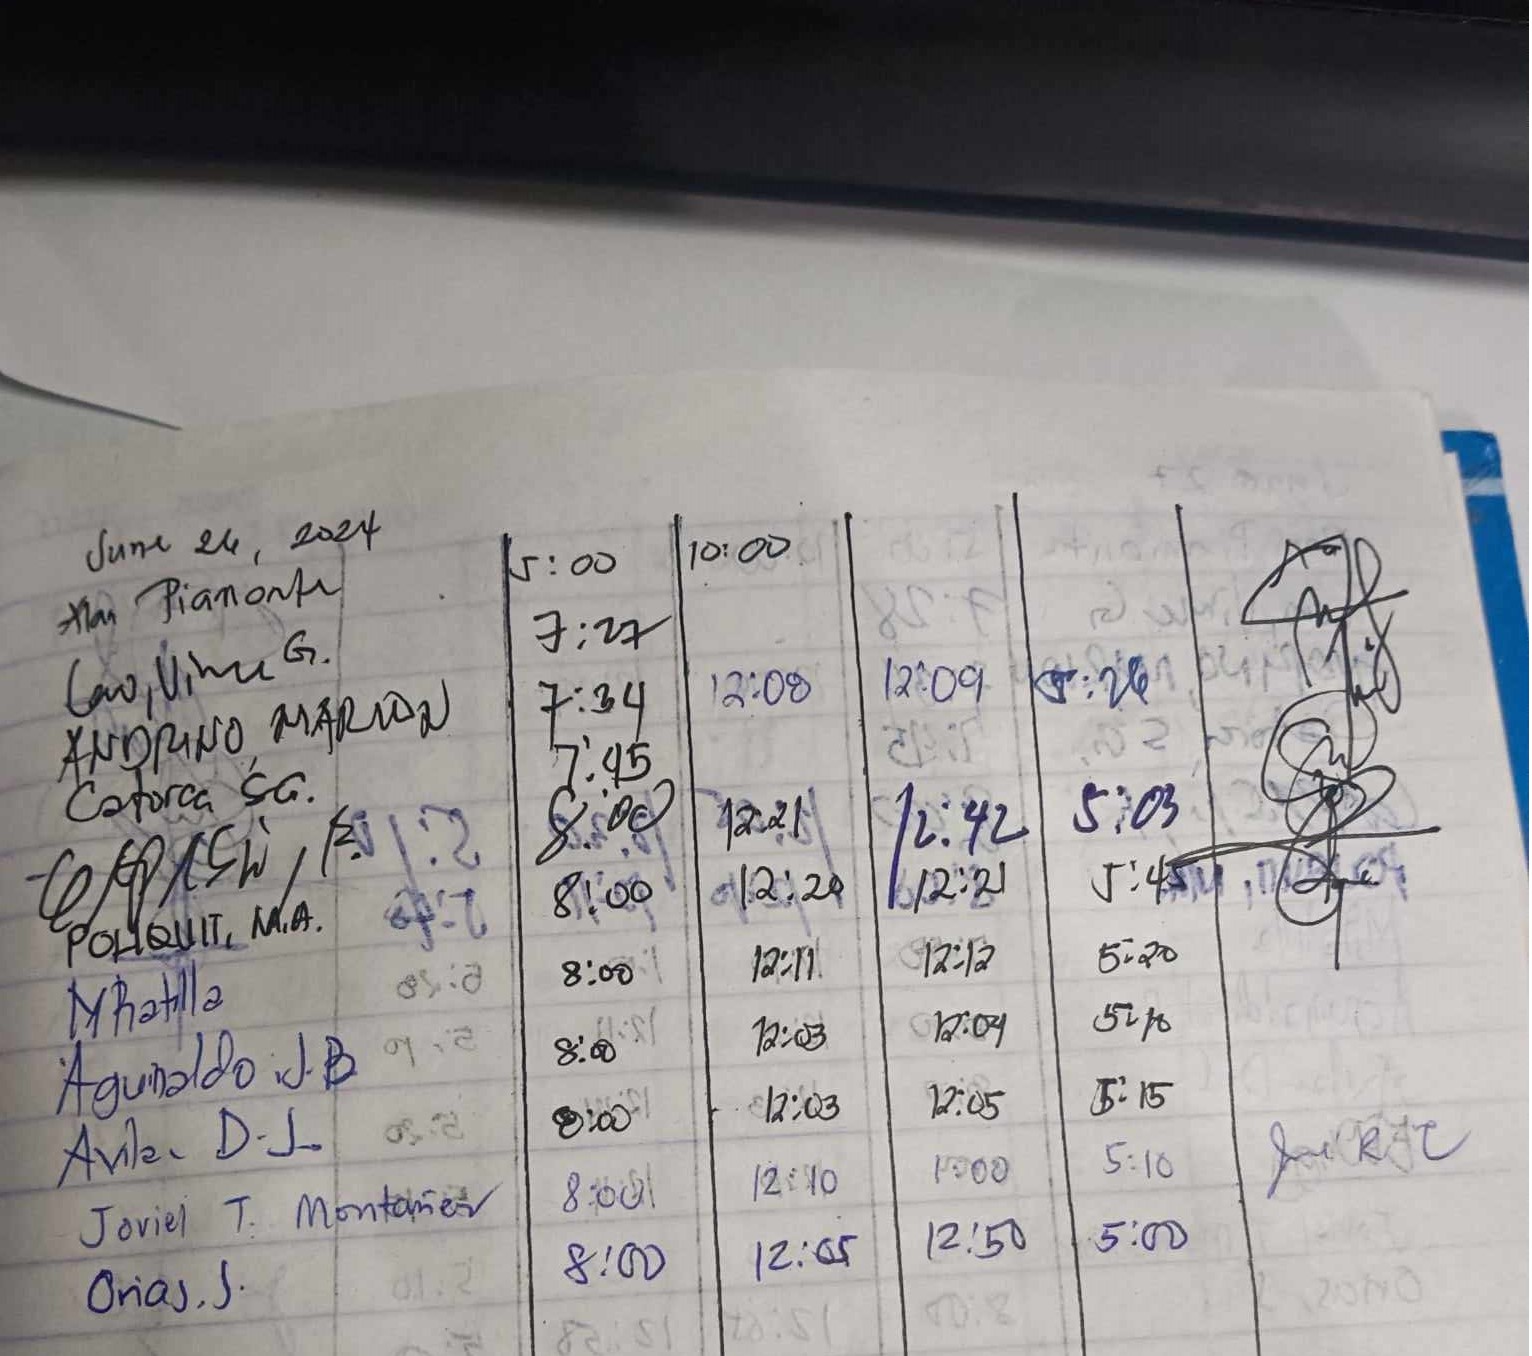 June 26, 2024
Alan Piamonte 5:00 10:00
Cavo, Vince G. 7:27
ANDRINO, MARION 7:34 12:08 12:09 5:26
Catorca SG. 7:45
8:00 12:21 12:42 5:03
POLIQUIT, M.A. 8:00 12:20 12:21 5:45
Mhatilla 8:00 12:11 12:12 5:20
Aguinaldo J.B 8:00 12:03 12:04 5:10
Avila D.J. 8:00 12:03 12:05 5:15
Joviel T. Montañer 8:00 12:10 1:00 5:10
Orias, J. 8:00 12:05 12:50 5:00